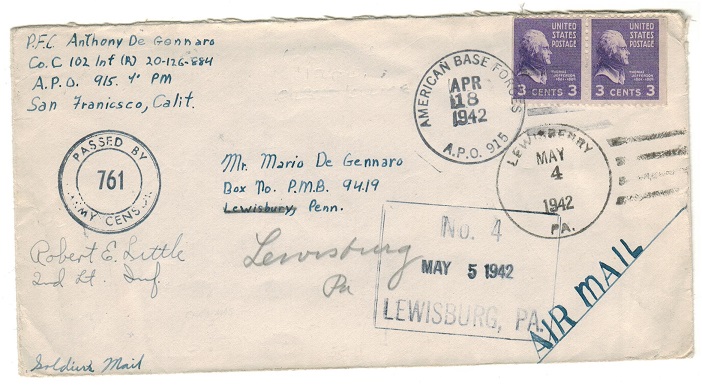 P.F.C Anthony De Gennaro
Co. C 102 Inf (R) 20-126-884
A.P.O. 915. % PM
San Franicsco, Calit.
UNITED STATES POSTAGE
THOMAS JEFFERSON
3 CENTS 3
UNITED STATES POSTAGE
THOMAS JEFFERSON
3 CENTS 3
AMERICAN BASE FORCES
APR
18
1942
A.P.O. 915
LEWISBERRY
MAY
4
1942
PA.
PASSED BY
761
ARMY CENSOR
Mr. Mario De Gennaro
Box No. P.M.B. 9419
Lewisbury, Penn.
Lewisburg
Pa
Robert E. Little
2nd Lt. Inf.
No. 4
MAY 5 1942
LEWISBURG, PA.
AIR MAIL
Soldiers Mail